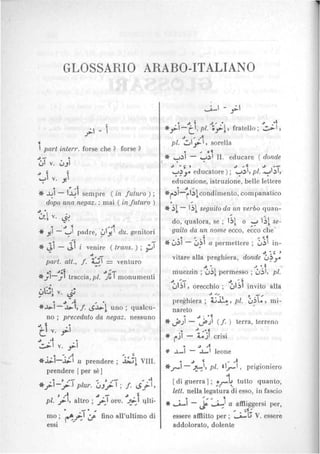 GLOSSARIO ARABO-ITALIANO
أ - أخر
أَ part interr. forse che ? forse ?
v.
v.
* أبد — أَبَدًا sempre ( in futuro ) ;
dopo una negaz. : mai ( in futuro )
v.
* أبو — أَبٌ padre, أَبَوَانِ du. genitori
* أتى — أَتَى i venire ( trans. ) ; آتٍ
part. att., f. آتِيَةٌ = venturo
* أثر — أَثَرٌ traccia, pl. آثَارٌ monumenti
v.
* أحد — أَحَدٌ f. إِحْدَى uno ; qualcu-
no ; preceduto da negaz. nessuno
أَخٌ v. أخو
أُخْتٌ v. أخو
* أخذ — أَخَذَ a prendere ; اِتَّخَذَ VIII.
prendere [ per sè ]
* أخر — آخَرُ plur. آخَرُونَ ; f. أُخْرَى,
pl. أُخَرُ, altro ; آخِرٌ ove. ulti-
mo ; عَنْ آخِرِهِمْ fino all'ultimo di
essi
أخر - أسف
* أخو — أَخٌ, pl. إِخْوَةٌ, fratello ; أُخْتٌ,
pl. أَخَوَاتٌ, sorella
* أدب — أَدَّبَ II. educare ( donde
مُؤَدِّبٌ educatore ) ; أَدَبٌ, pl. آدَابٌ,
educazione, istruzione, belle lettere
* أدم — إِدَامٌ condimento, companatico
* إِذْ seguito da un verbo quan-
do, qualora, se ; إِذَا o se-
guito da un nome ecco, ecco che
* أذن — أَذِنَ a permettere ; أَذَّنَ in-
vitare alla preghiera, donde مُؤَذِّنٌ
muezzin ; إِذْنٌ permesso ; أُذُنٌ, pl.
آذَانٌ, orecchio ; أَذَانٌ invito alla
preghiera ; مِئْذَنَةٌ, pl. مَآذِنُ, mi-
nareto
* أرض — أَرْضٌ ( f. ) terra, terreno
* أزم — أَزْمَةٌ crisi
* أسد — أَسَدٌ leone
* أسر — أَسِيرٌ, pl. أُسَرَاءُ, prigioniero
[ di guerra ] ; بِأَسْرِهِ tutto quanto,
lett. nella legatura di esso, in fascio
* أسف — أَسِفَ a affliggersi per,
essere afflitto per ; تَأَسَّفَ V. essere
addolorato, dolente